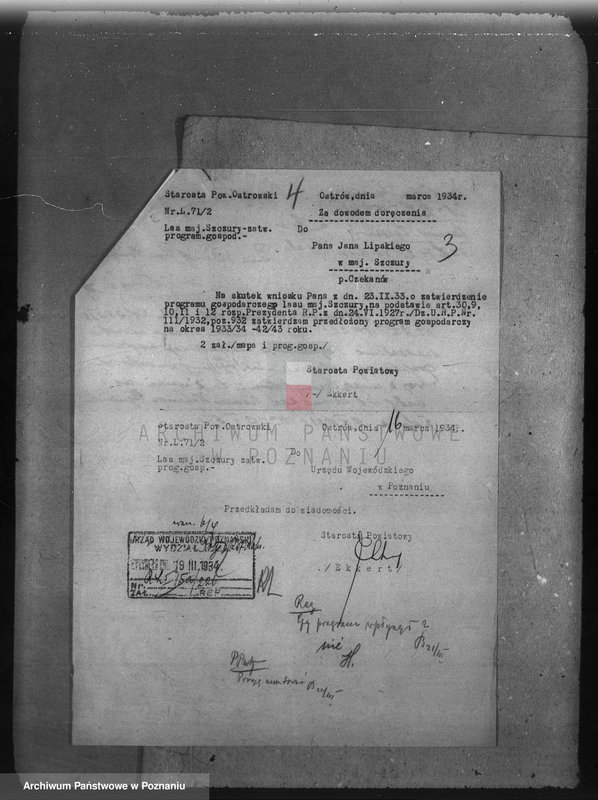 Starosta Pow.Ostrowski 4 Ostrów,dnia marca 1934r.
Nr.L.71/2 Za dowodem doręczenia
Las maj.Szczury-zatw. Do
program.gospod.-
Pana Jana Lipskiego 3
w maj. Szczury
p.Czekanów
Na skutek wniosku Pana z dn. 23.IX.33.o zatwierdzenie
programu gospodarczego lasu maj.Szczury,na podstawie art.30,9,
10,11 i 12 rozp.Prezydenta R.P.z dn.24.VI.1927r./Dz.U.R.P.Nr.
111/1932,poz.932 zatwierdzam przedłożony program gospodarczy
na okres 1933/34 -42/43 roku.
2 zał./mapa i prog.gosp./
Starosta Powiatowy
/-/ Ekkert
Starosta Pow.Ostrowski Ostrów,dnia 16 marca 1934r.
ARCHIWUM PAŃSTWOWE
Nr.L.71/2
W POZNANIU
Las maj.Szczury zatw. Do
prog.gosp.- Urzędu Wojewódzkiego
w Poznaniu
Przedkładam do wiadomości.
Starosta Powiatowy
/Ekkert/
URZĄD WOJEWÓDZKI POZNAŃSKI
WYDZIAŁ
19 III.1934
Nr.
ZAŁ. REF.
Reg
Czy program wpłynął?
nie
H.
Archiwum Państwowe w Poznaniu